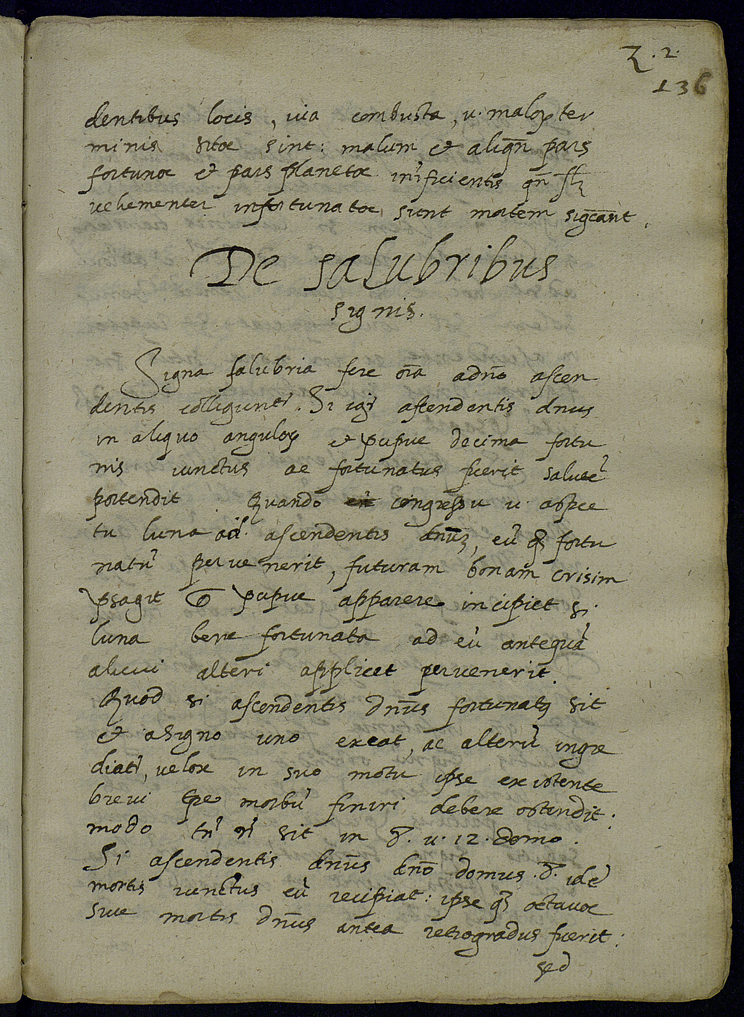 Z . 2 .
136
dentibus locis, via combusta, u. malor ter
minis sitae sint: malum et aliqñ pars
fortunae et pars planetae inificientis qñ
vehementer infortunatae, sunt mortem sigcant.
De salubribus
signis.
Signa salubria fere oĩa adño ascen
dentis colligunt. Si igr ascendentis dnus
in aliquo angulor et decima fortu
nis iunctus ac fortunatus fuerit salutẽ
portendit. Quando congressu u. aspec
tu luna ad ascendentis eũ fortu
natũ pervenerit, futuram bonam crisim
psagit apparere incipiet si
luna bene fortunata ad eũ antequã
alicui alteri applicet pervenerit.
Quod si ascendentis dnus fortunat9 sit
et a signo uno exeat, ac alterũ ingre
diatr, velox in suo motu ipse existente
brevi tpe morbũ finiri debere ostendit.
modo tñ nõ sit in 8. u. 12. domo.
Si ascendentis dnus dño domus 8. idẽ
mortis iunctus eũ recipiat: ipse octavae
sive mortis dnus antea retrogradus fuerit:
sed